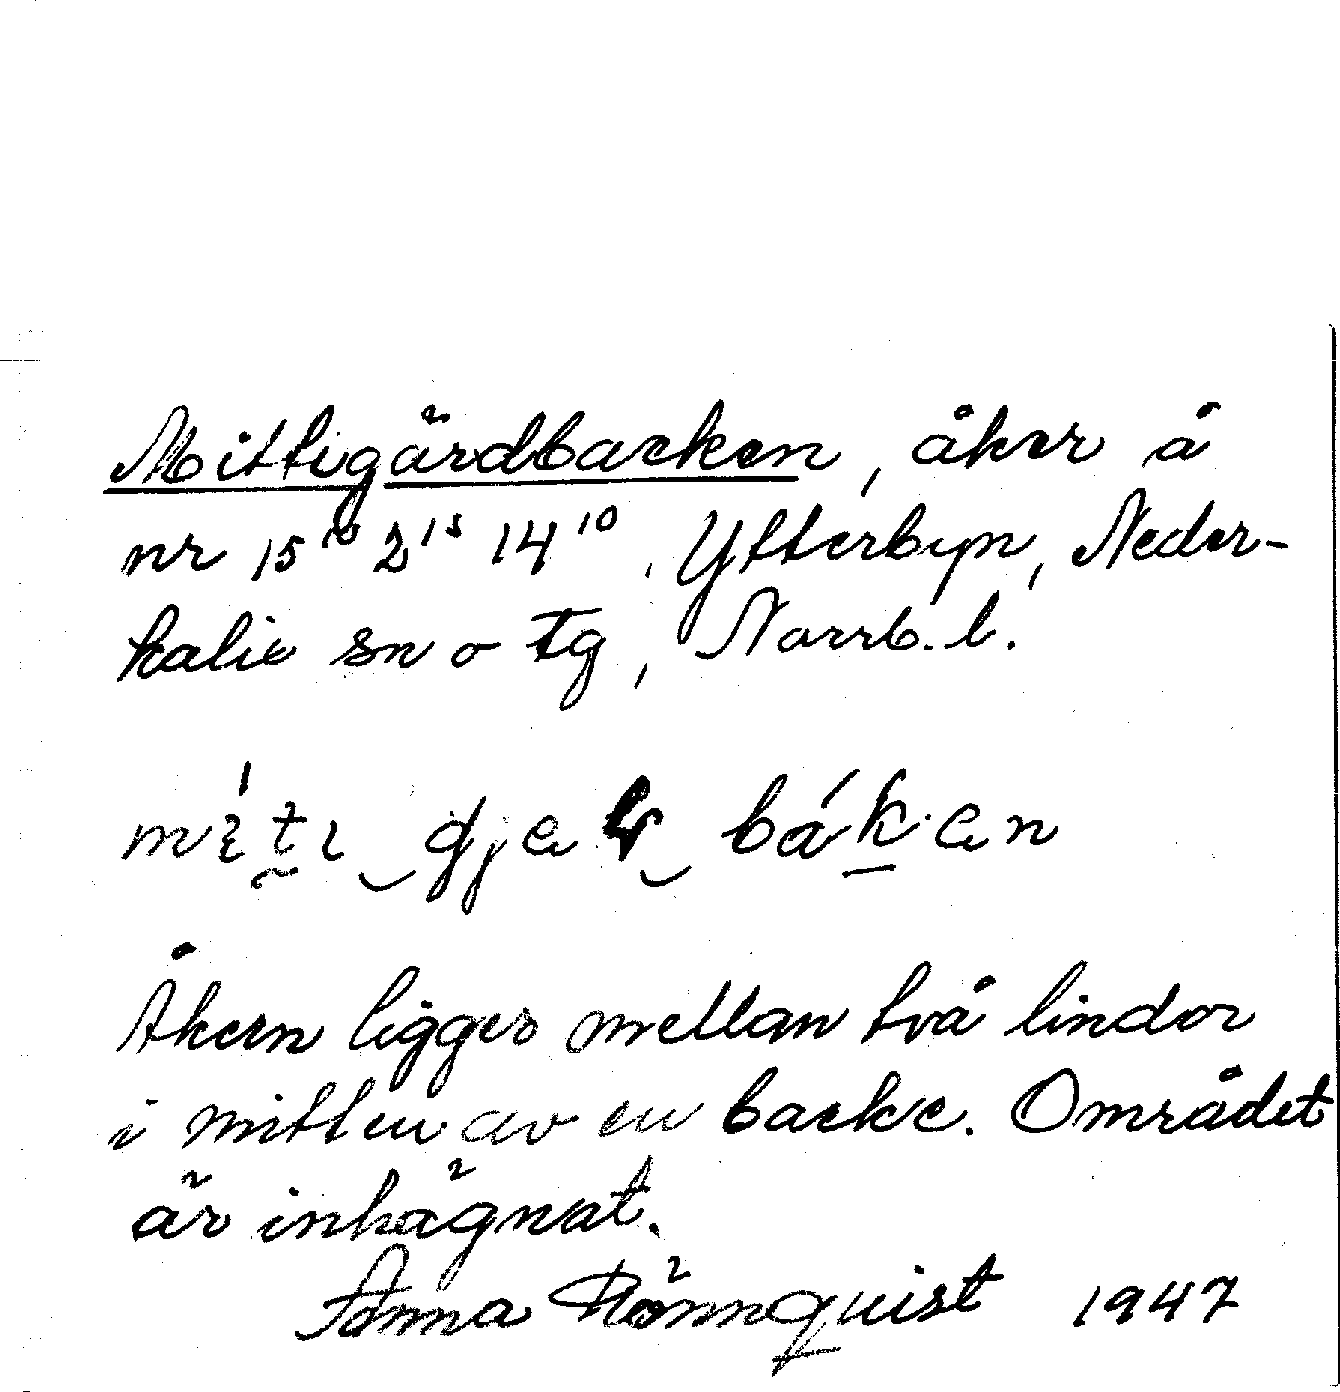 Mittigärdbacken, åker å
nr 15¹⁰ 2¹⁵ 14¹⁰, Ytterbyn, Neder-
kalix sn o tg, Norrb. l.
bák·en
Åkern ligger mellan två lindor
i mitten av en backe. Området
är inhägnat.
Anna Rönnquist 1947